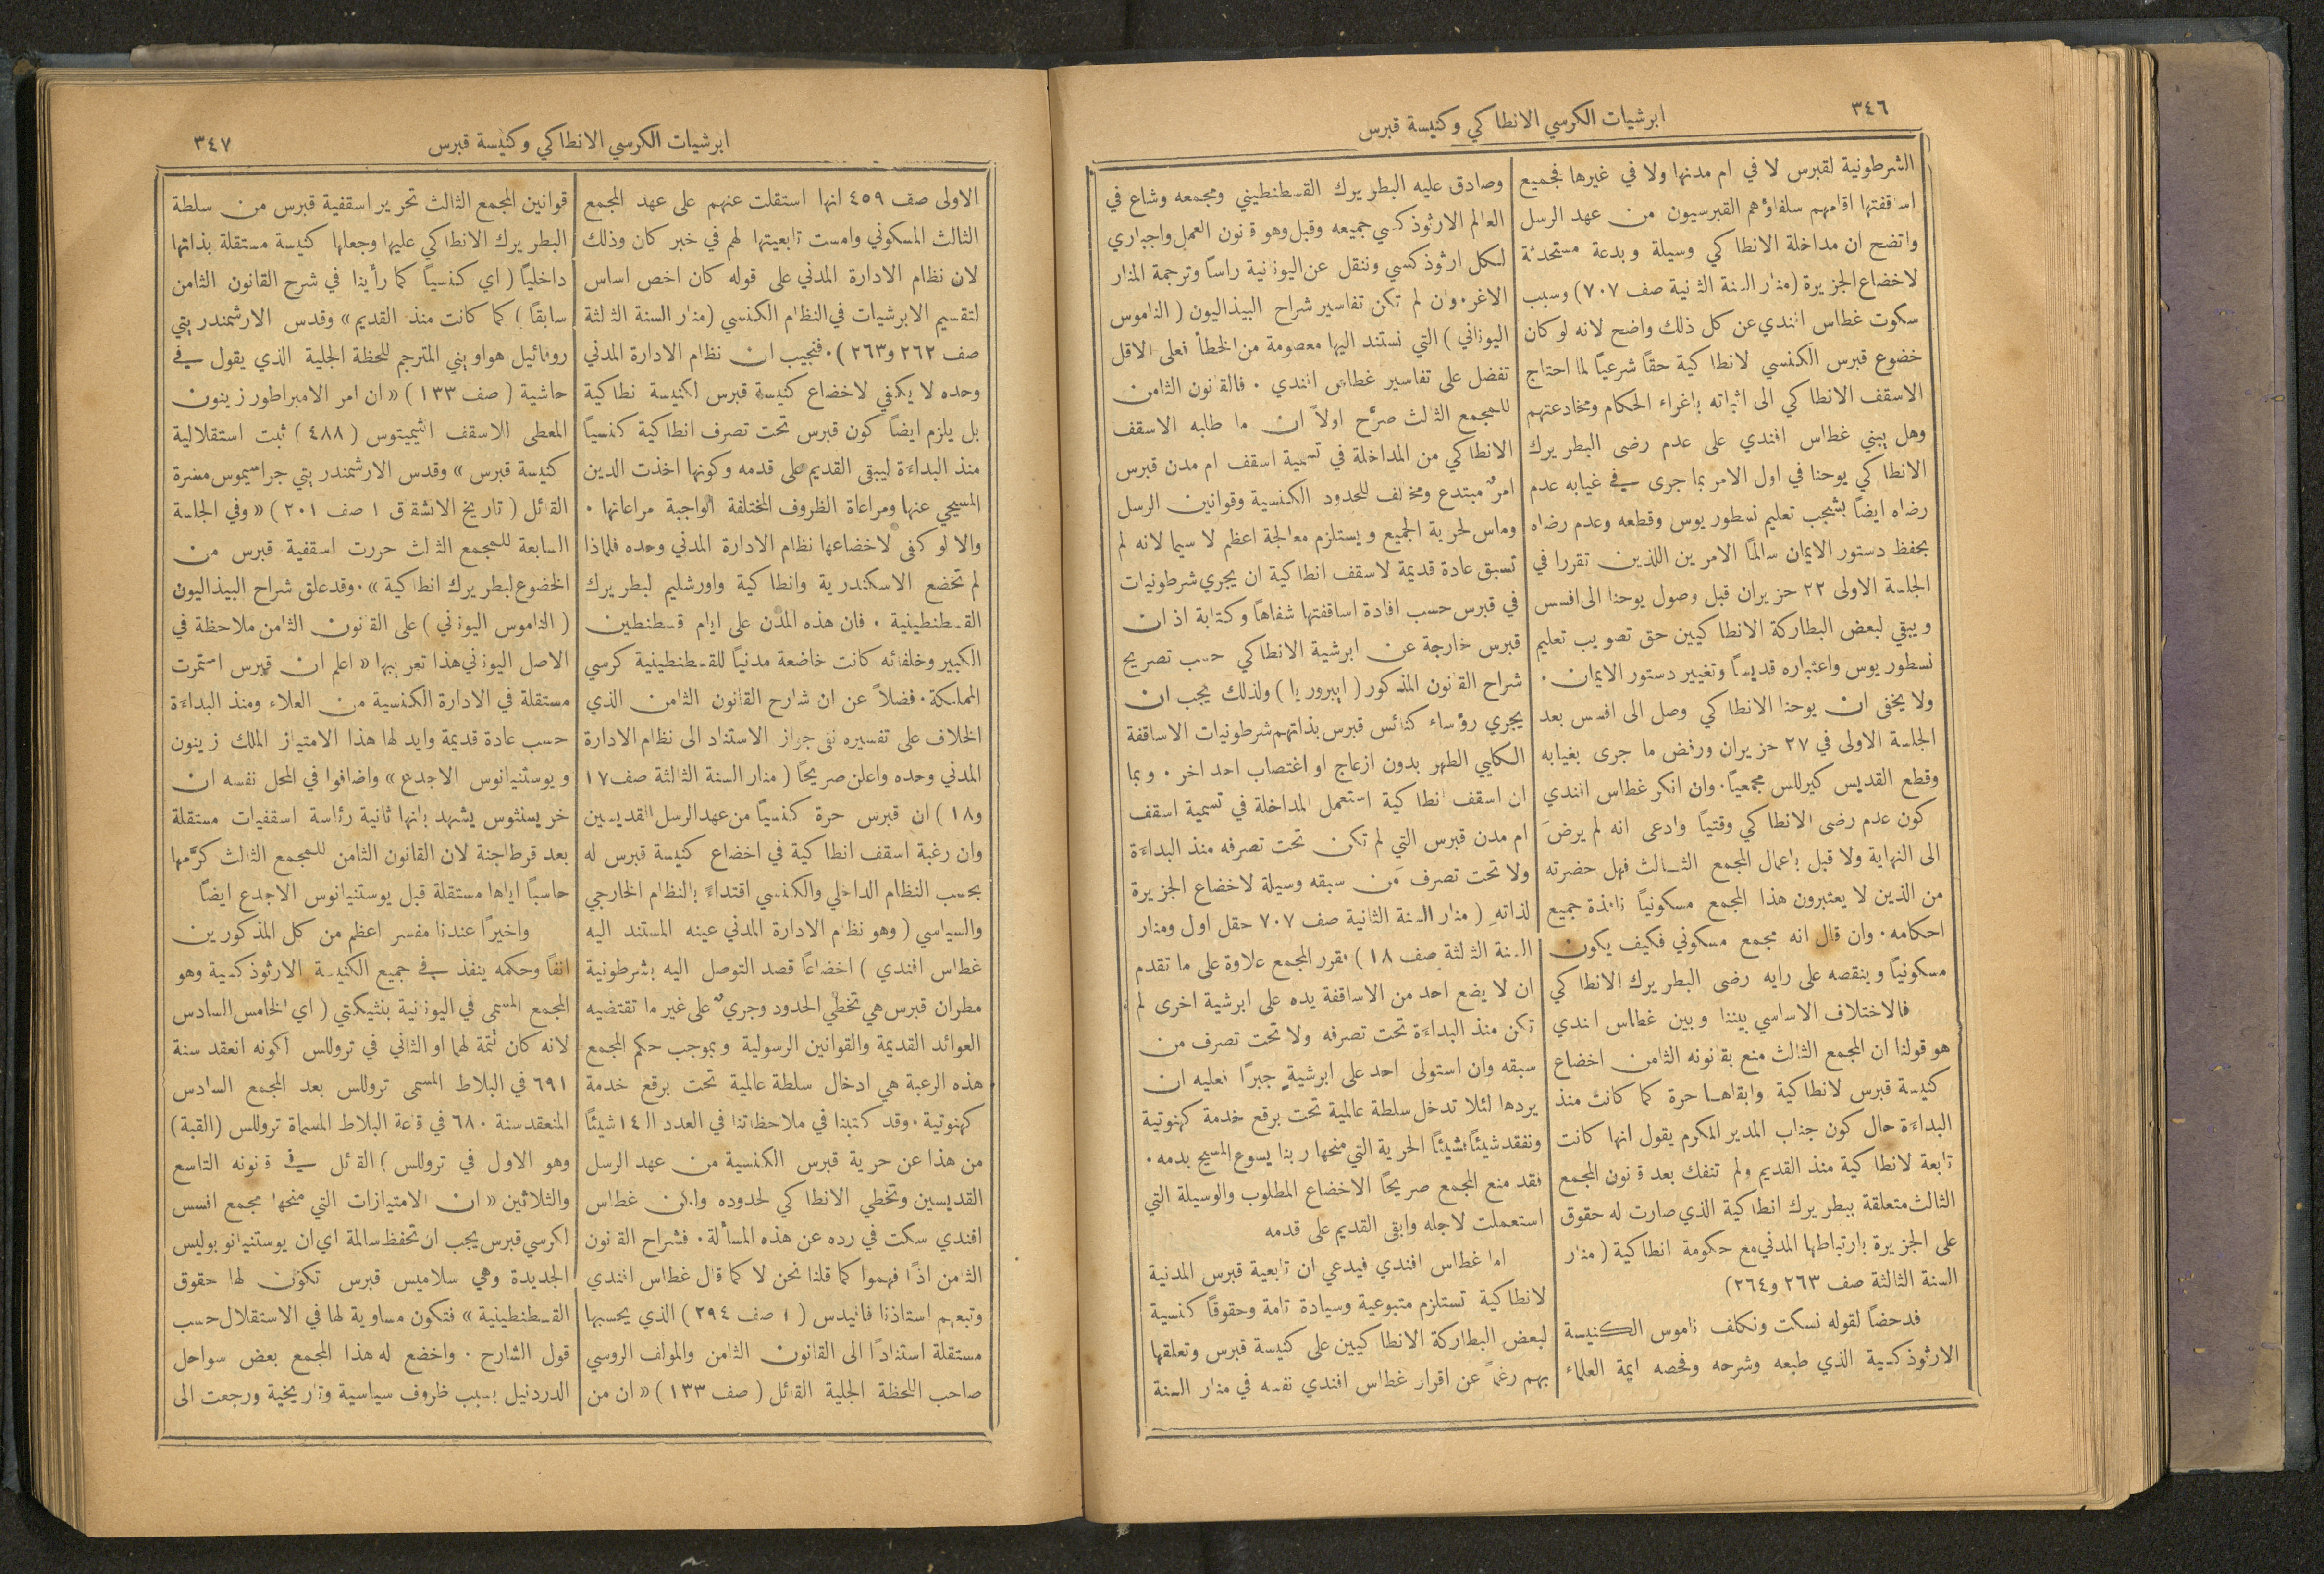 ٣٤٦
ابرشيات الكرسي الانطاكي وكنيسة قبرس
الشرطونية لقبرس لا في ام مدنها ولا في غيرها فجميع
اساقفتها اقامهم سلفاؤهم القبرسيون من عهد الرسل
واتضح ان مداخلة الانطاكي وسيلة وبدعة مستحدثة
لاخضاع الجزيرة (منار السنة الثانية صف ٧٠٧) وسبب
سكوت غطاس افندي عن كل ذلك واضح لانه لو كان
خضوع قبرس الكنسي لانطاكية حقاً شرعياً لما احتاج
الاسقف الانطاكي الى اثباته باغراء الحكام ومخادعتهم
وهل يبني غطاس افندي على عدم رضى البطريرك
الانطاكي يوحنا في اول الامر بما جرى في غيابه عدم
رضاه ايضاً بشجب تعليم نسطوريوس وقطعه وعدم رضاه
بحفظ دستور الايمان سالماً الامرين اللذين تقررا في
الجلسة الاولى ٢٢ حزيران قبل وصول يوحنا الى افسس
ويبقي لبعض البطاركة الانطاكيين حق تصويب تعليم
نسطوريوس واعتباره قديساً وتغيير دستور الايمان.
ولا يخفى ان يوحنا الانطاكي وصل الى افسس بعد
الجلسة الاولى في ٢٧ حزيران ورفض ما جرى بغيابه
وقطع القديس كيرللس مجمعياً. وان انكر غطاس افندي
كون عدم رضى الانطاكي وقتياً وادعى انه لم يرضَ
الى النهاية ولا قبل باعمال المجمع الثالث فهل حضرته
من الذين لا يعتبرون هذا المجمع مسكونياً نافذة جميع
احكامه. وان قال انه مجمع مسكوني فكيف يكون
مسكونياً وينقصه على رايه رضى البطريرك الانطاكي
فالاختلاف الاساسي بيننا وبين غطاس افندي
هو قولنا ان المجمع الثالث منع بقانونه الثامن اخضاع
كنيسة قبرس لانطاكية وابقاها حرة كما كانت منذ
البداءة حال كون جناب المدير المكرم يقول انها كانت
تابعة لانطاكية منذ القديم ولم تنفك بعد قانون المجمع
الثالث متعلقة ببطريرك انطاكية الذي صارت له حقوق
على الجزيرة بارتباطها المدني مع حكومة انطاكية (منار
السنة الثالثة صف ٢٦٣ و٢٦٤)
فدحضاً لقوله نسكت ونكلف ناموس الكنيسة
الارثوذكسية الذي طبعه وشرحه وفحصه ايمة العلماء
وصادق عليه البطريرك القسطنطيني ومجمعه وشاع في
العالم الارثوذكسي جميعه وقبل وهو قانون العمل واجباري
لكل ارثوذكسي وننقل عن اليونانية راساً وترجمة المنار
الاغر. وان لم تكن تفاسير شراح البيذاليون (الناموس
اليوناني) التي نستند اليها معصومة من الخطأ فعلى الاقل
تفضل على تفاسير غطاس افندي. فالقانون الثامن
للمجمع الثالث صرَّح اولاً ان ما طلبه الاسقف
الانطاكي من المداخلة في تسمية اسقف ام مدن قبرس
امرٌ مبتدع ومخالف للحدود الكنسية وقوانين الرسل
وماس لحرية الجميع ويستلزم معالجة اعظم لا سيما لانه لم
تسبق عادة قديمة لاسقف انطاكية ان يجري شرطونيات
في قبرس حسب افادة اساقفتها شفاهاً وكتابة اذ ان
قبرس خارجة عن ابرشية الانطاكي حسب تصريح
شراح القانون المذكور (ايبروريا) ولذلك يجب ان
يجري رؤساء كنائس قبرس بذاتهم شرطونيات الاساقفة
الكليي الطهر بدون ازعاج او اغتصاب احد اخر. وبما
ان اسقف انطاكية استعمل المداخلة في تسمية اسقف
ام مدن قبرس التي لم تكن تحت تصرفه منذ البداءة
ولا تحت تصرف مَن سبقه وسيلة لاخضاع الجزيرة
لذاتهِ (منار السنة الثانية صف ٧٠٧ حقل اول ومنار
السنة الثالثة صف ١٨) فقرر المجمع علاوة على ما تقدم
ان لا يضع احد من الاساقفة يده على ابرشية اخرى لم
تكن منذ البداءة تحت تصرفه ولا تحت تصرف من
سبقه وان استولى احد على ابرشيةٍ جبراً فعليه ان
يردها لئلا تدخل سلطة عالمية تحت برقع خدمة كهنوتية
ونفقد شيئاً فشيئاً الحرية التي منحها ربنا يسوع المسيح بدمه.
فقد منع المجمع صريحاً الاخضاع المطلوب والوسيلة التي
استعملت لاجله وابقى القديم على قدمه
اما غطاس افندي فيدعي ان تابعية قبرس المدنية
لانطاكية تستلزم متبوعية وسيادة تامة وحقوقاً كنسية
لبعض البطاركة الانطاكيين على كنيسة قبرس وتعلقها
بهم رغماً عن اقرار غطاس افندي نفسه في منار السنة
ابرشيات الكرسي الانطاكي وكنيسة قبرس
٣٤٧
الاولى صف ٤٥٩ انها استقلت عنهم على عهد المجمع
الثالث المسكوني وامست تابعيتها لهم في خبر كان وذلك
لان نظام الادارة المدني على قوله كان اخص اساس
لتقسيم الابرشيات في النظام الكنسي (منار السنة الثالثة
صف ٢٦٢ و٢٦٣). فنجيب ان نظام الادارة المدني
وحده لا يكفي لاخضاع كنيسة قبرس لكنيسة انطاكية
بل يلزم ايضاً كون قبرس تحت تصرف انطاكية كنسياً
منذ البداءة ليبقى القديم على قدمه وكونها اخذت الدين
المسيحي عنها ومراعاة الظروف المختلفة الواجبة مراعاتها.
والا لو كفى لاخضاعها نظام الادارة المدني وحده فلماذا
لم تخضع الاسكندرية وانطاكية واورشليم لبطريرك
القسطنطينية. فان هذه المدن على ايام قسطنطين
الكبير وخلفائه كانت خاضعة مدنياً للقسطنطينية كرسي
المملكة. فضلاً عن ان شارح القانون الثامن الذي
الخلاف على تفسيره نفى جواز الاستناد الى نظام الادارة
المدني وحده واعلن صريحاً (منار السنة الثالثة صف ١٧
و١٨) ان قبرس حرة كنسياً من عهد الرسل القديسين
وان رغبة اسقف انطاكية في اخضاع كنيسة قبرس له
بحسب النظام الداخلي والكنسي اقتداءً بالنظام الخارجي
والسياسي (وهو نظام الادارة المدني عينه المستند اليه
غطاس افندي) اخضاعاً قصد التوصل اليه بشرطونية
مطران قبرس هي تخطي الحدود وجريٌ على غير ما تقتضيه
العوائد القديمة والقوانين الرسولية وبموجب حكم المجمع
هذه الرغبة هي ادخال سلطة عالمية تحت برقع خدمة
كهنوتية. وقد كتبنا في ملاحظاتنا في العدد الـ ١٤ شيئاً
من هذا عن حرية قبرس الكنسية من عهد الرسل
القديسين وتخطي الانطاكي لحدوده ولكن غطاس
افندي سكت في رده عن هذه المسألة. فشراح القانون
الثامن اذاً فهموا كما قلنا نحن لا كما قال غطاس افندي
وتبعهم استاذنا فانيدس (١ صف ٢٩٤) الذي يحسبها
مستقلة استناداً الى القانون الثامن والمولف الروسي
صاحب اللحظة الجلية القائل (صف ١٣٣) «ان من
قوانين المجمع الثالث تحرير اسقفية قبرس من سلطة
البطريرك الانطاكي عليها وجعلها كنيسة مستقلة بذاتها
داخلياً (اي كنسياً كما رأينا في شرح القانون الثامن
سابقاً) كما كانت منذ القديم» وقدس الارشمندريتي
روفائيل هواويني المترجم للحظة الجلية الذي يقول في
حاشية (صف ١٣٣) «ان امر الامبراطور زينون
المعطى للاسقف انثيميتوس (٤٨٨) ثبت استقلالية
كنيسة قبرس» وقدس الارشمندريتي جراسيموس مسرة
القائل (تاريخ الانشقاق ١ صف ٢٠١) «وفي الجلسة
السابعة للمجمع الثالث حررت اسقفية قبرس من
الخضوع لبطريرك انطاكية». وقد علق شراح البيذاليون
(الناموس اليوناني) على القانون الثامن ملاحظة في
الاصل اليوناني هذا تعريبها «اعلم ان قبرس استمرت
مستقلة في الادارة الكنسية من العلاء ومنذ البداءة
حسب عادة قديمة وايد لها هذا الامتياز الملك زينون
ويوستنيانوس الاجدع» واضافوا في المحل نفسه ان
خريسنثوس يشهد بانها ثانية رئاسة اسقفيات مستقلة
بعد قرطاجنة لان القانون الثامن للمجمع الثالث كرَّمها
حاسباً اياها مستقلة قبل يوستنيانوس الاجدع ايضاً
واخيراً عندنا مفسر اعظم من كل المذكورين
انفاً وحكمه ينفذ في جميع الكنيسة الارثوذكسية وهو
المجمع المسمى في اليونانية بنثيكتي (اي الخامس السادس
لانه كان تتمة لهما او الثاني في تروللس لكونه انعقد سنة
٦٩١ في البلاط المسمى تروللس بعد المجمع السادس
المنعقد سنة ٦٨٠ في قاعة البلاط المسماة تروللس (القبة)
وهو الاول في تروللس) القائل في قانونه التاسع
والثلاثين «ان الامتيازات التي منحها مجمع افسس
لكرسي قبرس يجب ان تحفظ سالمة اي ان يوستنيانوبوليس
الجديدة وهي سلاميس قبرس تكون لها حقوق
القسطنطينية» فتكون مساوية لها في الاستقلال حسب
قول الشارح. واخضع له هذا المجمع بعض سواحل
الدردنيل بسبب ظروف سياسية وتاريخية ورجعت الى